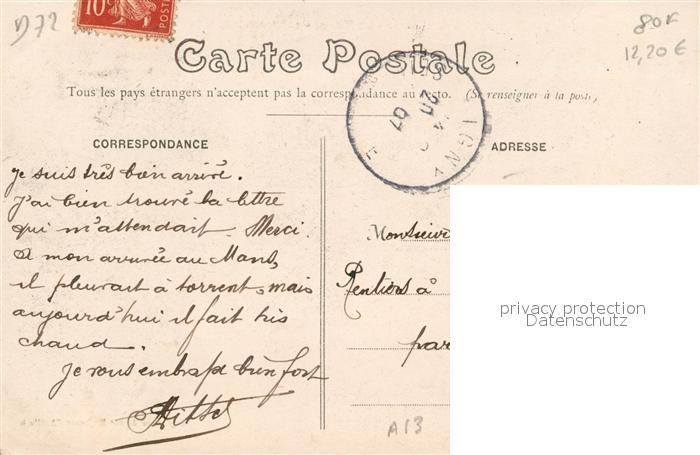 D72
10
POSTES
80F
12,20 €
Carte Postale
Tous les pays étrangers n'acceptent pas la correspondance au recto. (Se renseigner à la poste)
CORRESPONDANCE
ADRESSE
je suis très bien arrivé.
J'ai bien trouvé la lettre
qui m'attendait. Merci.
A mon arrivée au Mans,
il pleuvait à torrent, mais
aujourd'hui il fait très
chaud.
Je vous embrasse bien fort
Monsieur
Rentiers à
par
A13
07
privacy protection
Datenschutz